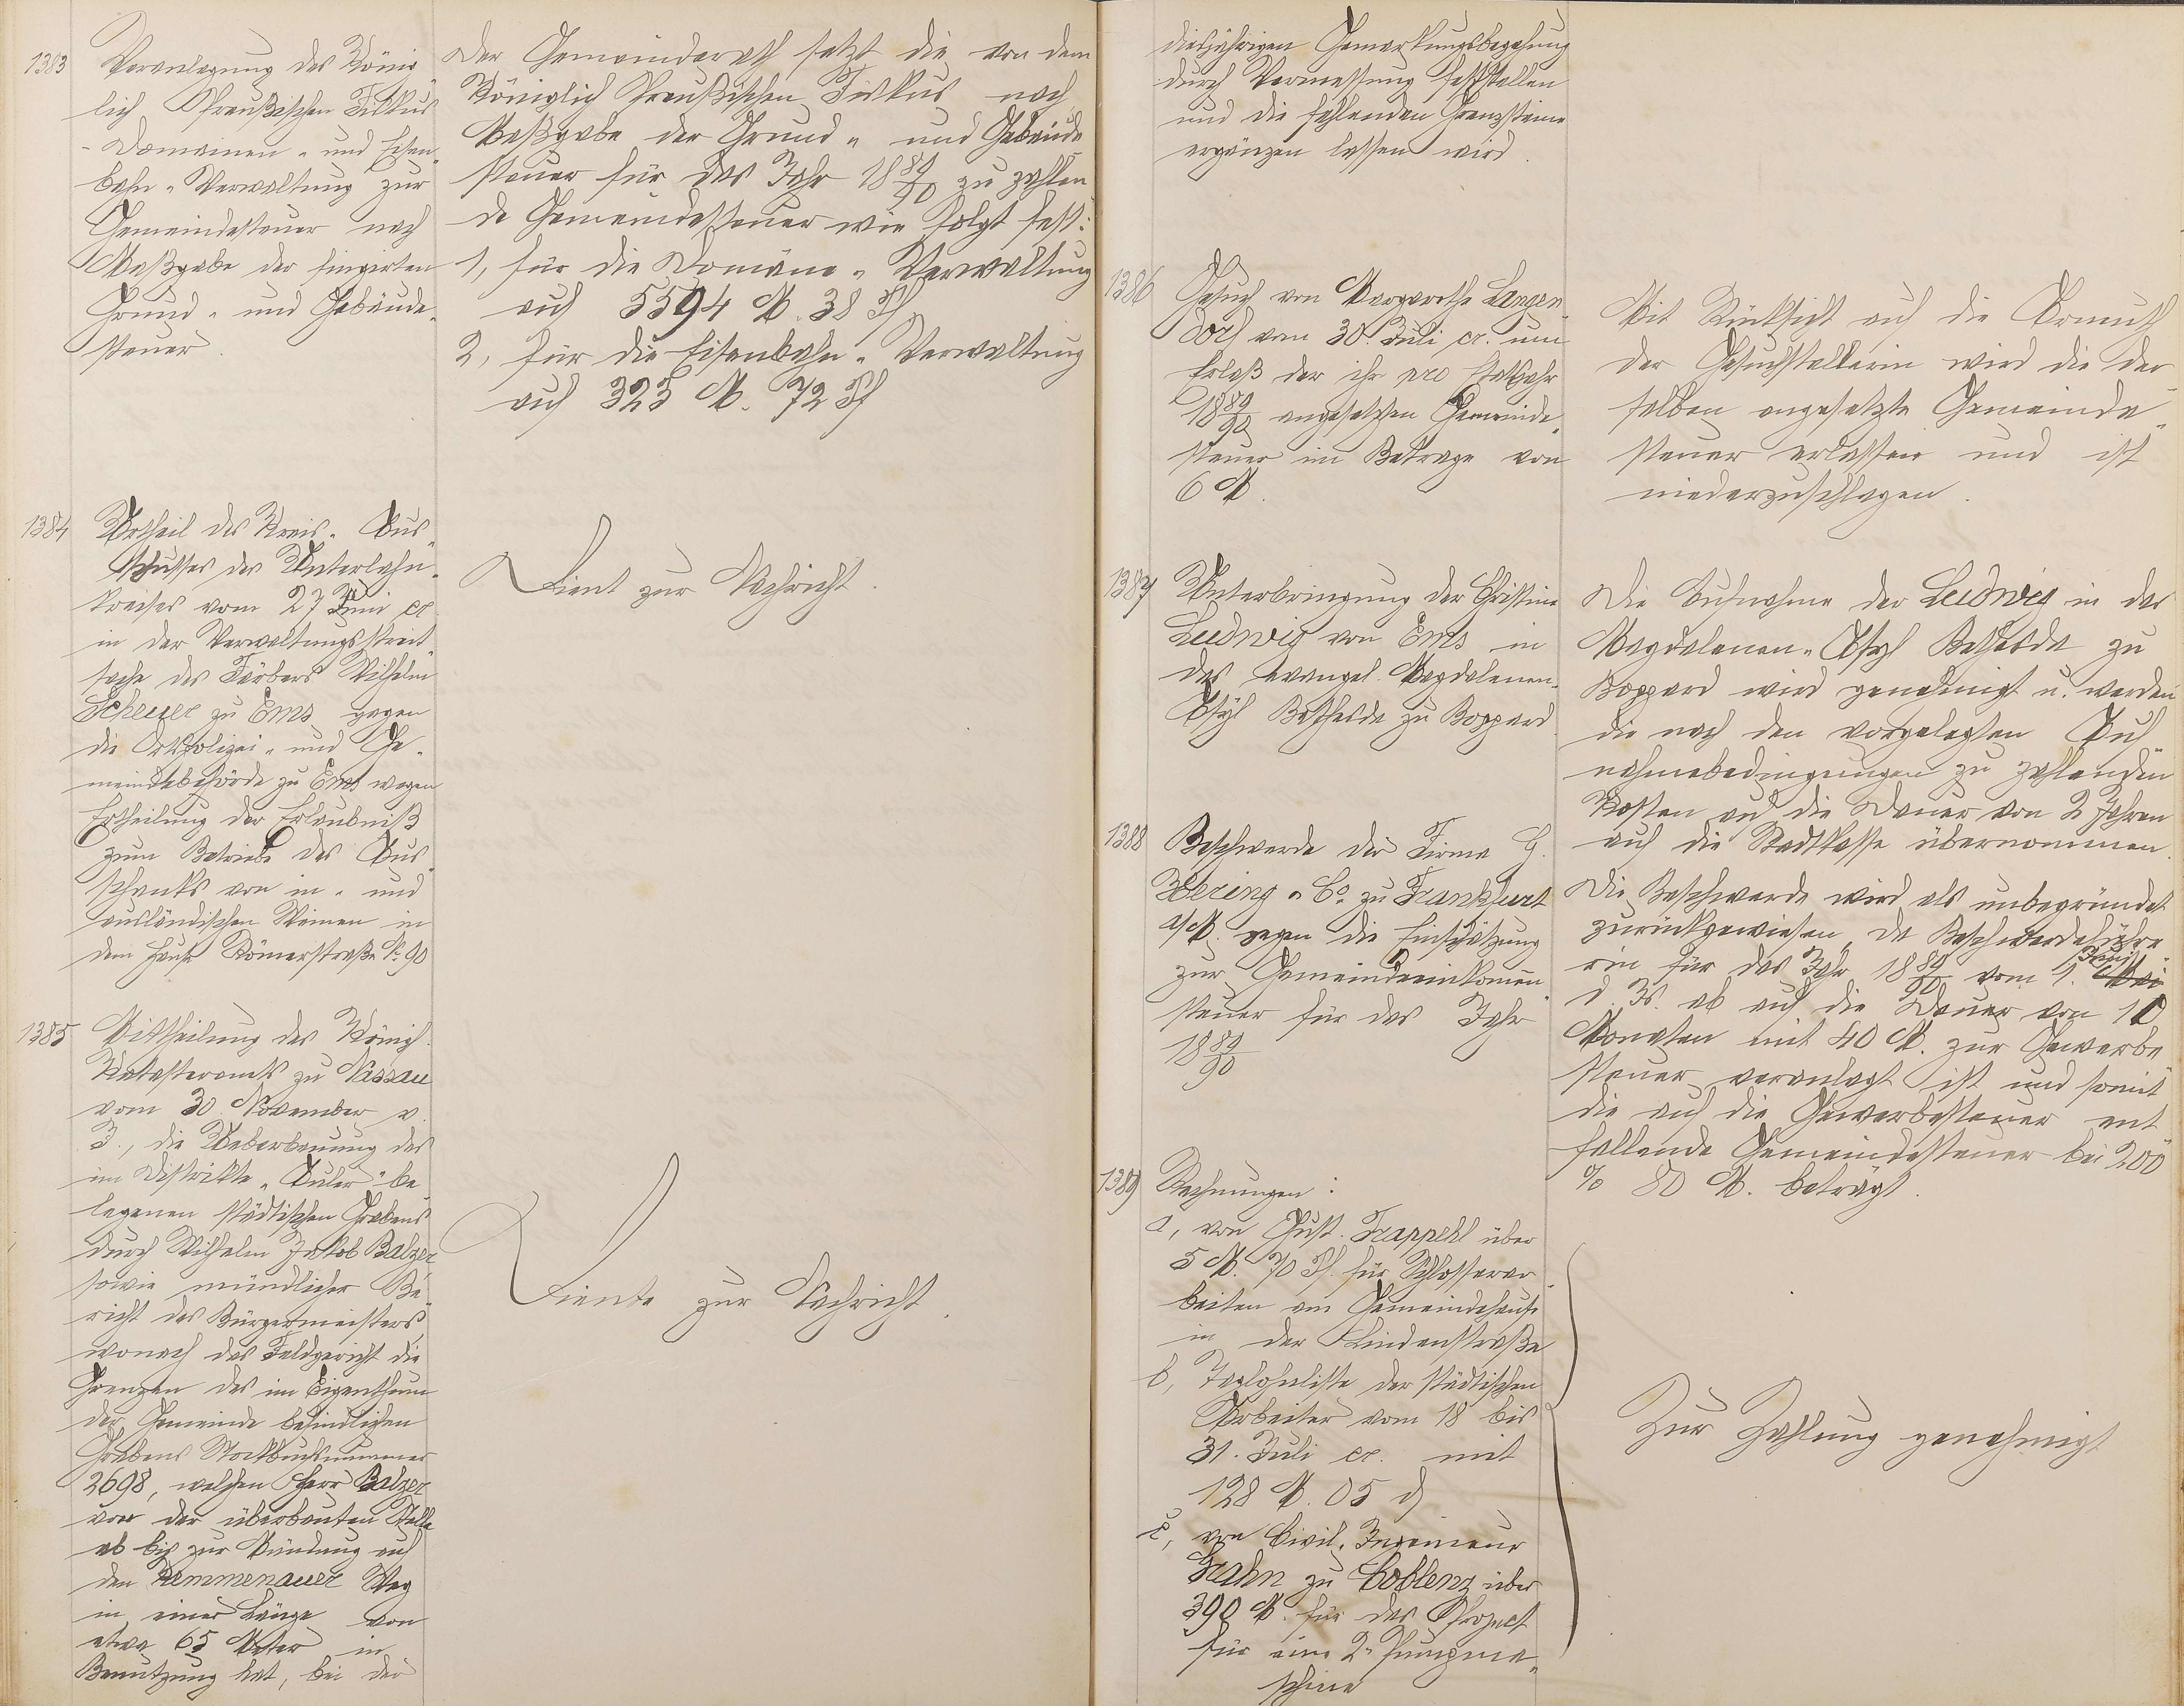 1383
Veranlagung des König
lich Preußischen Fiskus
- Domainen- und Eisen-
bahn-Verwaltung zur
Gemeindesteuer nach
Maßgabe der fingirten
Grund- und Gebäude-
steuer.
Der Gemeinderath setzt die von dem
Königlich Preußischen Fiskus nach
Maßgabe der Grund- und Gebäude
steuer für das Jahr 1889/90 zu zahlen
de Gemeindesteuer wie folgt fest:
1, für die Domäne-Verwaltung
auf 5594 M. 38 Pf
2, für die Eisenbahn-Verwaltung
auf 323 M. 72 Pf
1384
Urtheil des Kreis-Aus-
schusses des Unterlahn-
kreises vom 27 Juni cr
in der Verwaltungsstreit-
sache des Färbers Wilhelm
Scheuer zu Ems gegen
die Ortspolizei- und Ge-
meindebehörde zu Ems wegen
Ertheilung der Erlaubniß
zum Betriebe des Aus-
schanks von in- und
ausländischen Weinen in
dem Hause Römerstraße No 90
Dient zur Nachricht.
1385
Mittheilung des Königl.
Katasteramts zu Nassau
vom 30. November v.
J., die Ueberbauung des
im Distrikte „Auler" be-
legenen städtischen Grabens
durch Wilhelm Jakob Balzer
sowie mündlicher Be-
richt des Bürgermeisters,
wonach das Feldgericht die
Grenzen des im Eigenthum
der Gemeinde befindlichen
Grabens Stockbuchsnummer
2698, welchen Herr Balzer
von der überbauten Stelle
ab bis zur Mündung auf
den Kemmenauer Weg
in einer Länge von
etwa 65 Meter in
Benutzung hat, bei der
diesjährigen Gemarkungsbegehung
durch Vermessung feststellen
und die fehlenden Grenzsteine
ergänzen lassen wird.
Diente zur Nachricht.
1386
Gesuch von Margarethe Langen-
dorf vom 30. Juli cr. um
Erlaß der ihr pro Etatsjahr
1889/90 angesetzten Gemeinde-
steuer im Betrage von
6 M.
Mit Rücksicht auf die Armuth
der Gesuchstellerin wird die der-
selben angesetzte Gemeinde-
steuer erlassen und ist
niederzuschlagen.
1387
Unterbringung der Christine
Ludwig von Ems in
das evangel. Magdalenen-
Asyl Bethesda zu Boppard.
Die Aufnahme der Ludwig in das
Magdalenen-Asyl Bethesda zu
Boppard wird genehmigt u. werden
die nach den vorgelegten Auf-
nahmebedingungen zu zahlenden
Kosten auf die Dauer von 2 Jahren
auf die Stadtkasse übernommen.
1388
Beschwerde der Firma G.
Hering & Co. zu Frankfurt
a/M. gegen die Einschätzung
zur Gemeindeeinkommen-
steuer für das Jahr
1889/90
Die Beschwerde wird als unbegründet
zurückgewiesen, da Beschwerdeführe-
rin für das Jahr 1889/90 vom 1. Juni
d. Js. ab auf die Dauer von 10
Monaten mit 40 M. zur Gewerbe-
steuer veranlagt ist und somit
die auf die Gewerbesteuer ent-
fallende Gemeindesteuer bei 200
% 80 M. beträgt.
1389
Rechnungen:
a, von Gust. Trappehl über
5 M. 70 Pf. für Schlosserar-
beiten am Gemeindehause
in der Lindenstraße
b, Taglohnliste der städtischen
Arbeiter vom 18 bis
31. Juli cr. mit
128 M. 05 d
c, von Civil-Ingenieur
Grahn zu Coblenz über
390 M. für das Project
für eine 2te Pumpma-
schine
Zur Zahlung genehmigt